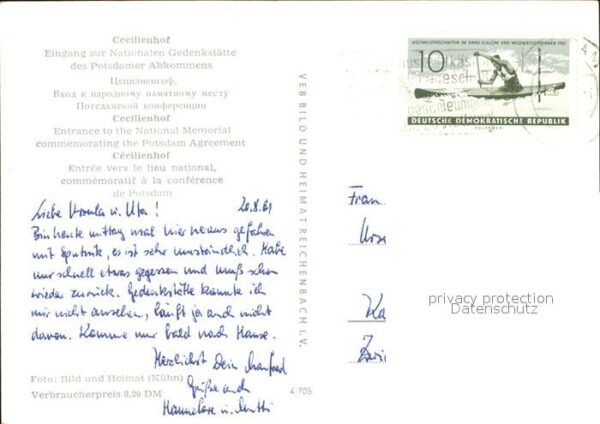 Cecilienhof
Eingang zur Nationalen Gedenkstätte
des Potsdamer Abkommens
Цецилиенгоф,
Вход к народному памятному месту
Потсдамской конференции
Cecilienhof
Entrance to the National Memorial
commemorating the Potsdam Agreement
Cécilienhof
Entrée vers le lieu national,
commémoratif à la conférence
de Potsdam
Liebe Ursula u. Uta! 20.8.61
Bin heute mittag mal hier heraus gefahren
mit Sputnik, es ist sehr umständlich. Habe
nur schnell etwas gegessen und muß schon
wieder zurück. Gedenkstätte konnte ich
mir nicht ansehen, läuft ja auch nicht
davon. Komme nur bald nach Hause.
Herzlichst Dein Manfred
Grüße auch
Hannelore u. Mutti
Foto: Bild und Heimat (Kühn)
Verbraucherpreis 0,20 DM
4/705
VEB BILD UND HEIMAT REICHENBACH I. V.
WELTMEISTERSCHAFTEN IM KANU-SLALOM UND WILDWASSERRENNEN 1961
10
DEUTSCHE DEMOKRATISCHE REPUBLIK
Frau
Urs
Ka
privacy protection
Datenschutz